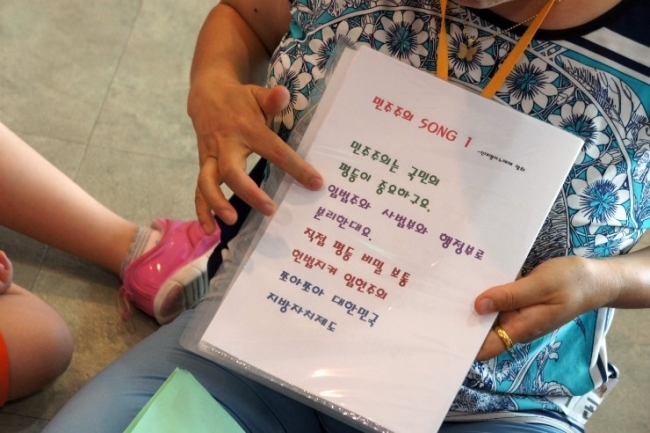 민주주의 SONG 1
민주주의는 국민의
평등이 중요하고요.
입법주와 사법부와 행정부로
분리한대요.
직접 평등 비밀 보통
헌법지켜 입헌주의
쪼아쪼아 대한민국
지방자치제도